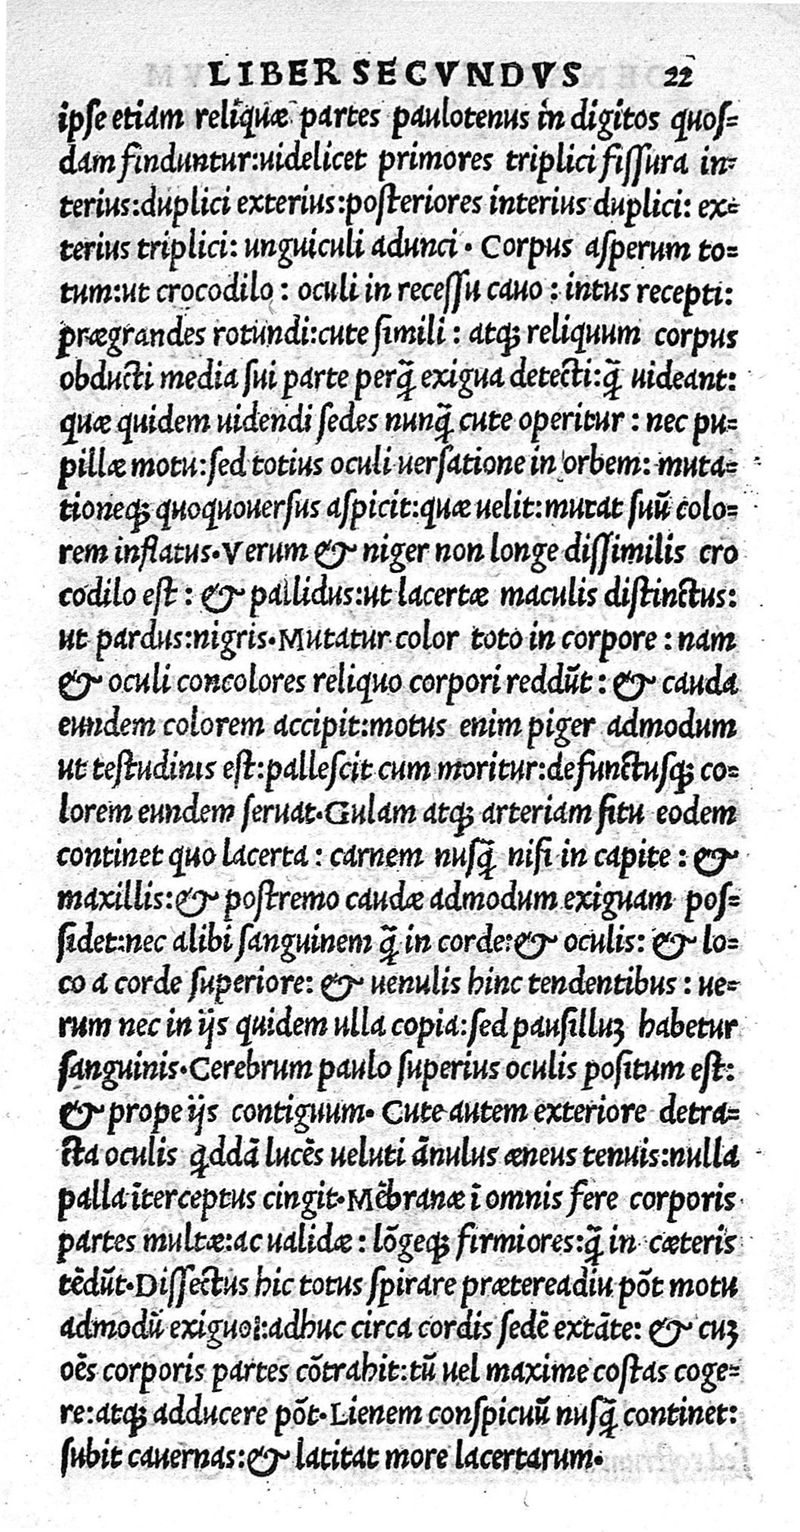 LIBER SECVNDVS 22
ipſe etiam reliquæ partes paulotenus in digitos quoſ=
dam finduntur:uidelicet primores triplici fiſſura in=
terius:duplici exterius:poſteriores interius duplici: ex=
terius triplici: unguiculi adunci. Corpus aſperum to=
tum:ut crocodilo : oculi in receſſu cauo : intus recepti:
prægrandes rotundi:cute ſimili : atqꝫ reliquum corpus
obducti media ſui parte perq̃ exigua detecti:q̃ uideant:
quæ quidem uidendi ſedes nunq̃ cute operitur : nec pu=
pillæ motu:ſed totius oculi uerſatione in orbem: muta=
tioneqꝫ quoquouerſus aſpicit:quæ uelit:mutat ſuũ colo=
rem inflatus.Verum & niger non longe diſſimilis cro
codilo eſt : & pallidus:ut lacertæ maculis diſtinctus:
ut pardus:nigris.Mutatur color toto in corpore : nam
& oculi concolores reliquo corpori reddũt : & cauda
eundem colorem accipit:motus enim piger admodum
ut teſtudinis eſt:palleſcit cum moritur:defunctuſqꝫ co=
lorem eundem ſeruat.Gulam atqꝫ arteriam ſitu eodem
continet quo lacerta : carnem nuſq̃ niſi in capite : &
maxillis:& poſtremo caudæ admodum exiguam poſ=
ſidet:nec alibi ſanguinem q̃ in corde:& oculis: & lo=
co a corde ſuperiore: & uenulis hinc tendentibus : ue=
rum nec in ijs quidem ulla copia:ſed pauſilluꝫ habetur
ſanguinis.Cerebrum paulo ſuperius oculis poſitum eſt:
& prope ijs contiguum. Cute autem exteriore detra=
cta oculis q̃ddã lucẽs ueluti ãnulus æneus tenuis:nulla
palla ĩterceptus cingit.Mẽbranæ ĩ omnis fere corporis
partes multæ:ac ualidæ : lõgeqꝫ firmiores:q̃ in cæteris
tẽdũt.Diſſectus hic totus ſpirare prætereadiu põt motu
admodũ exiguo:adhuc circa cordis ſedẽ extãte: & cuꝫ
oẽs corporis partes cõtrahit:tũ uel maxime coſtas coge=
re:atqꝫ adducere põt.Lienem conſpicuũ nuſq̃ continet:
ſubit cauernas:& latitat more lacertarum.